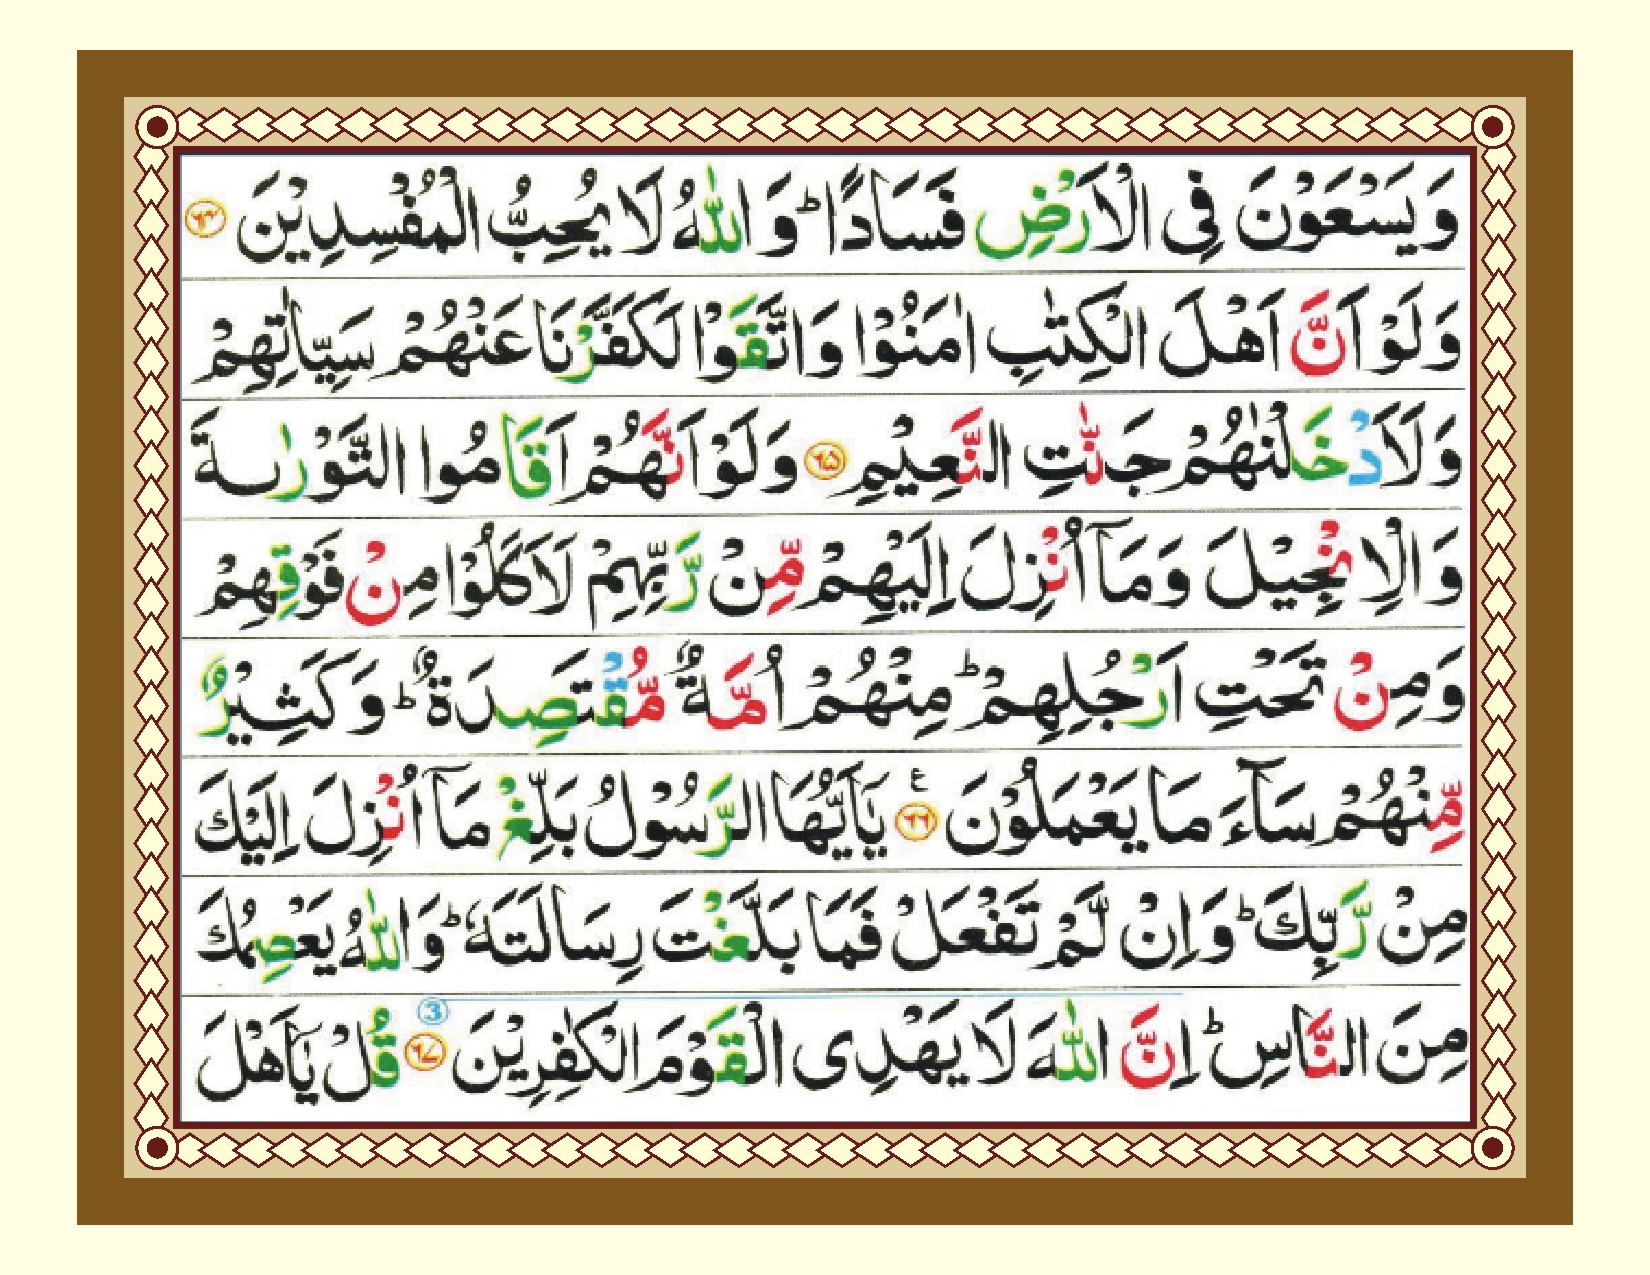 وَيَسْعَوْنَ فِى الْاَرْضِ فَسَادًا ؕ وَ اللّٰهُ لَا يُحِبُّ الْمُفْسِدِيْنَ ۶۴
وَلَوْ اَنَّ اَهْلَ الْكِتٰبِ اٰمَنُوْا وَاتَّقَوْا لَكَفَّرْنَا عَنْهُمْ سَيِّاٰتِهِمْ
وَلَاَدْخَلْنٰهُمْ جَنّٰتِ النَّعِيْمِ ۶۵ وَلَوْ اَنَّهُمْ اَقَامُوا التَّوْرٰٮةَ
وَالْاِنْجِيْلَ وَمَاۤ اُنْزِلَ اِلَيْهِمْ مِّنْ رَّبِّهِمْ لَاَكَلُوْا مِنْ فَوْقِهِمْ
وَمِنْ تَحْتِ اَرْجُلِهِمْ ؕ مِنْهُمْ اُمَّةٌ مُّقْتَصِدَةٌ ؕ وَكَثِيْرٌ
مِّنْهُمْ سَآءَ مَا يَعْمَلُوْنَ ۶۶ ع يٰۤاَيُّهَا الرَّسُوْلُ بَلِّغْ مَاۤ اُنْزِلَ اِلَيْكَ
مِنْ رَّبِّكَ ؕ وَاِنْ لَّمْ تَفْعَلْ فَمَا بَلَّغْتَ رِسَالَتَهٗ ؕ وَاللّٰهُ يَعْصِمُكَ
مِنَ النَّاسِ ؕ اِنَّ اللّٰهَ لَا يَهْدِى الْقَوْمَ الْكٰفِرِيْنَ ۶۷ 3 قُلْ يٰۤاَهْلَ